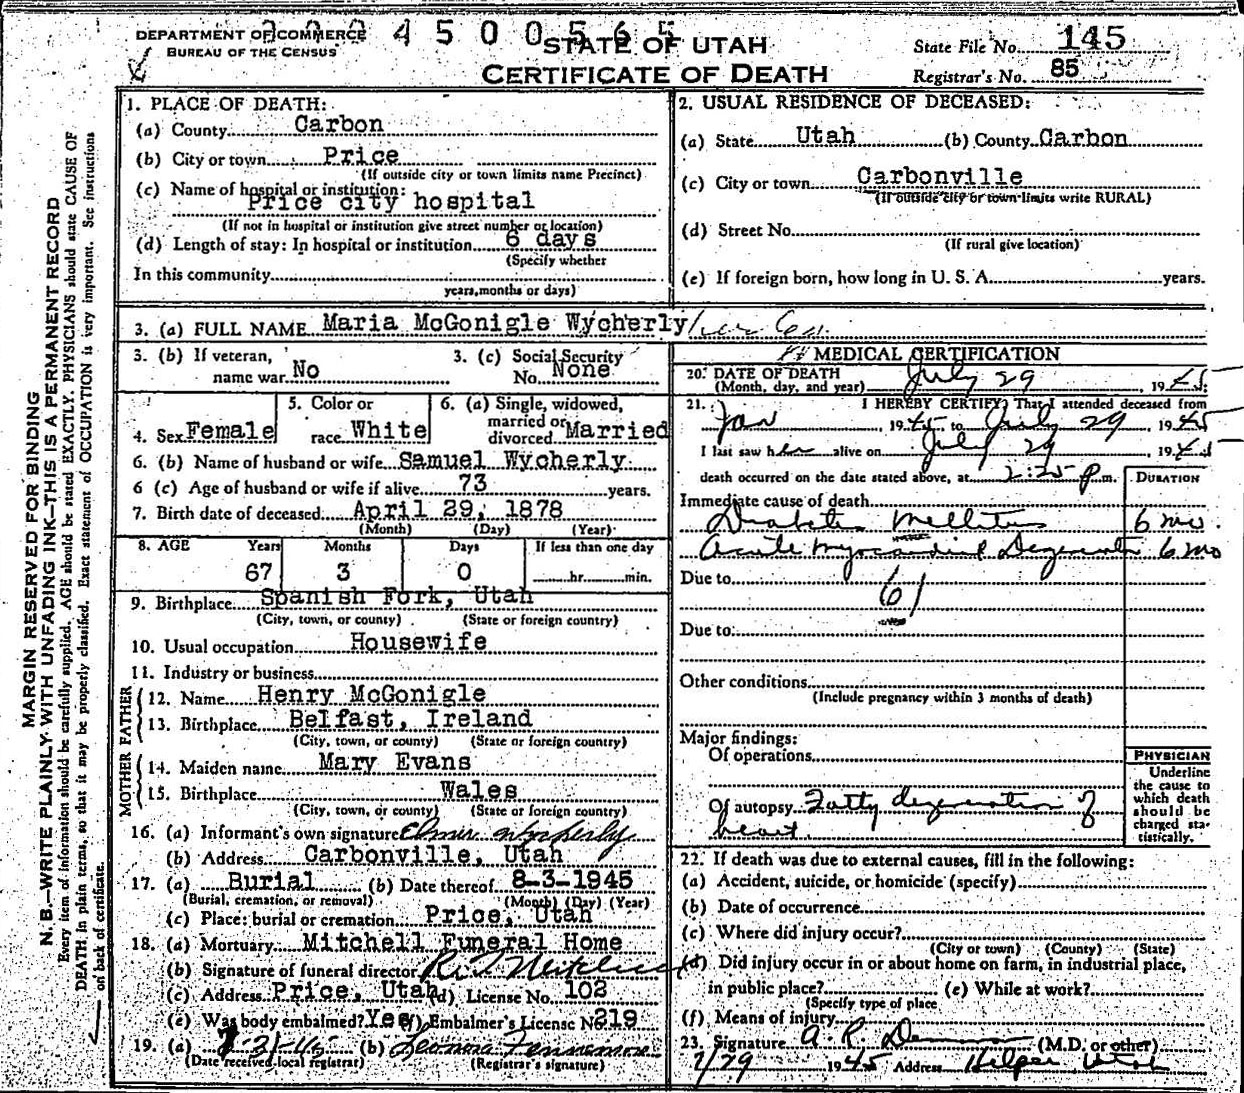 DEPARTMENT OF COMMERCE
BUREAU OF THE CENSUS
4500565
STATE OF UTAH
CERTIFICATE OF DEATH
State File No. 145
Registrar's No. 85
MARGIN RESERVED FOR BINDING
N. B.—WRITE PLAINLY WITH UNFADING INK—THIS IS A PERMANENT RECORD
Every item of information should be carefully supplied. AGE should be stated EXACTLY. PHYSICIANS should state CAUSE OF
DEATH in plain terms, so that it may be properly classified. Exact statement of OCCUPATION is very important. See instructions
on back of certificate.
1. PLACE OF DEATH:
(a) County Carbon
(b) City or town Price
(If outside city or town limits name Precinct)
(c) Name of hospital or institution:
Price city hospital
(If not in hospital or institution give street number or location)
(d) Length of stay: In hospital or institution 6 days
(Specify whether
In this community
years, months or days)
2. USUAL RESIDENCE OF DECEASED:
(a) State Utah (b) County Carbon
(c) City or town Carbonville
(If outside city or town limits write RURAL)
(d) Street No.
(If rural give location)
(e) If foreign born, how long in U. S. A. years.
3. (a) FULL NAME Maria McGonigle Wycherly
3. (b) If veteran, name war No
3. (c) Social Security No. None
4. Sex Female
5. Color or race White
6. (a) Single, widowed, married or divorced Married
6. (b) Name of husband or wife Samuel Wycherly
6 (c) Age of husband or wife if alive 73 years.
7. Birth date of deceased April 29, 1878
(Month) (Day) (Year)
8. AGE Years Months Days If less than one day
67 3 0 hr. min.
9. Birthplace Spanish Fork, Utah
(City, town, or county) (State or foreign country)
10. Usual occupation Housewife
11. Industry or business
FATHER
12. Name Henry McGonigle
13. Birthplace Belfast, Ireland
(City, town, or county) (State or foreign country)
MOTHER
14. Maiden name Mary Evans
15. Birthplace Wales
(City, town, or county) (State or foreign country)
16. (a) Informant's own signature Elmer Wycherly
(b) Address Carbonville, Utah
17. (a) Burial (b) Date thereof 8-3-1945
(Burial, cremation, or removal) (Month) (Day) (Year)
(c) Place: burial or cremation Price, Utah
18. (a) Mortuary Mitchell Funeral Home
(b) Signature of funeral director Mitchell
(c) Address Price, Utah (d) License No. 102
(e) Was body embalmed? Yes (f) Embalmer's License No 219
19. (a) (b) Leonora
(Date received local registrar) (Registrar's signature)
MEDICAL CERTIFICATION
20. DATE OF DEATH
(Month, day, and year) July 29, 1945
21. I HEREBY CERTIFY That I attended deceased from
Jan 1945 to July 29 1945
I last saw her alive on July 29, 1945
death occurred on the date stated above, at 2:25 p.m.
DURATION
Immediate cause of death
Diabetes Mellitus 6 mo.
Acute Myocardial Degenerati 6 mo
Due to 61
Due to:
Other conditions
(Include pregnancy within 3 months of death)
Major findings:
Of operations
Of autopsy Fatty degeneration of
heart
PHYSICIAN
Underline
the cause to
which death
should be
charged sta-
tistically.
22. If death was due to external causes, fill in the following:
(a) Accident, suicide, or homicide (specify)
(b) Date of occurrence
(c) Where did injury occur?
(City or town) (County) (State)
(d) Did injury occur in or about home on farm, in industrial place,
in public place? (e) While at work?
(Specify type of place
(f) Means of injury
23. Signature A. R. (M.D. or other)
7/29 1945 Address Helper Utah